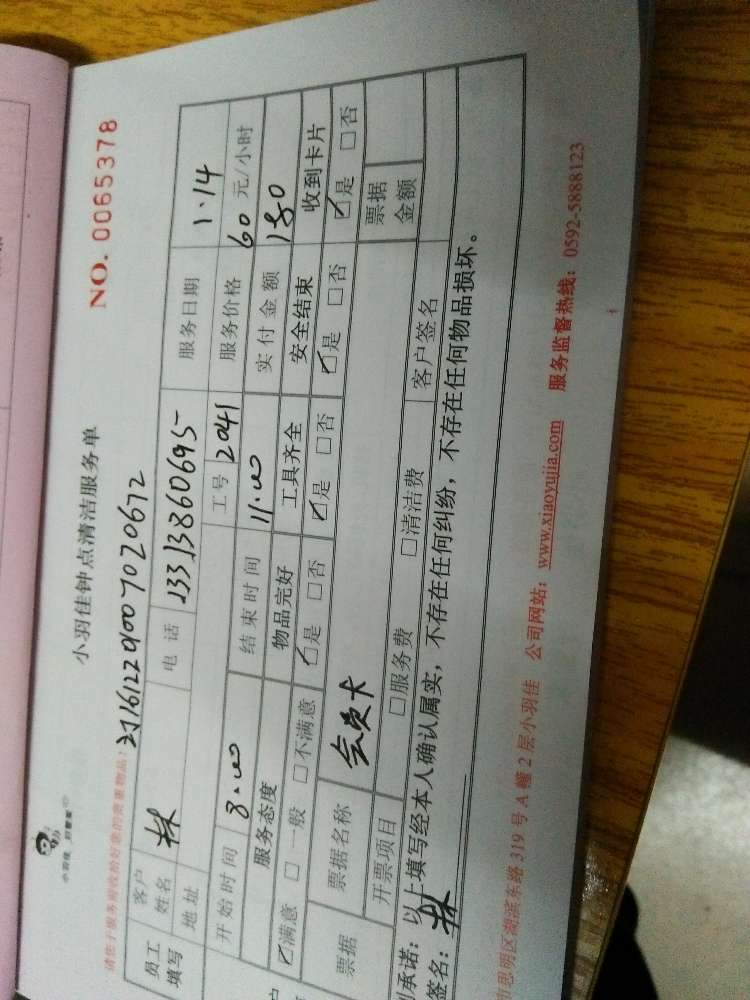 小羽佳 到管家
小羽佳钟点清洁服务单
NO. 0065378
请您于服务前收拾好您的贵重物品!
2J1612201007020672
员工填写 客户姓名 林 电话 13313860695 服务日期 1.14
地址 工号 2041 服务价格 60 元/小时
开始时间 8.00 结束时间 11.00 实付金额 180
服务态度 物品完好 工具齐全 安全结束 收到卡片
☑满意 □一般 □不满意 ☑是 □否 ☑是 □否 ☑是 □否 ☑是 □否
票据 票据名称 会员卡 票据金额
开票项目 □服务费 □清洁费 客户签名
承诺：以上填写经本人确认属实，不存在任何纠纷，不存在任何物品损坏。
签名：林
思明区湖滨东路319号A幢2层小羽佳 公司网站：www.xiaoyujia.com 服务监督热线：0592-5888123